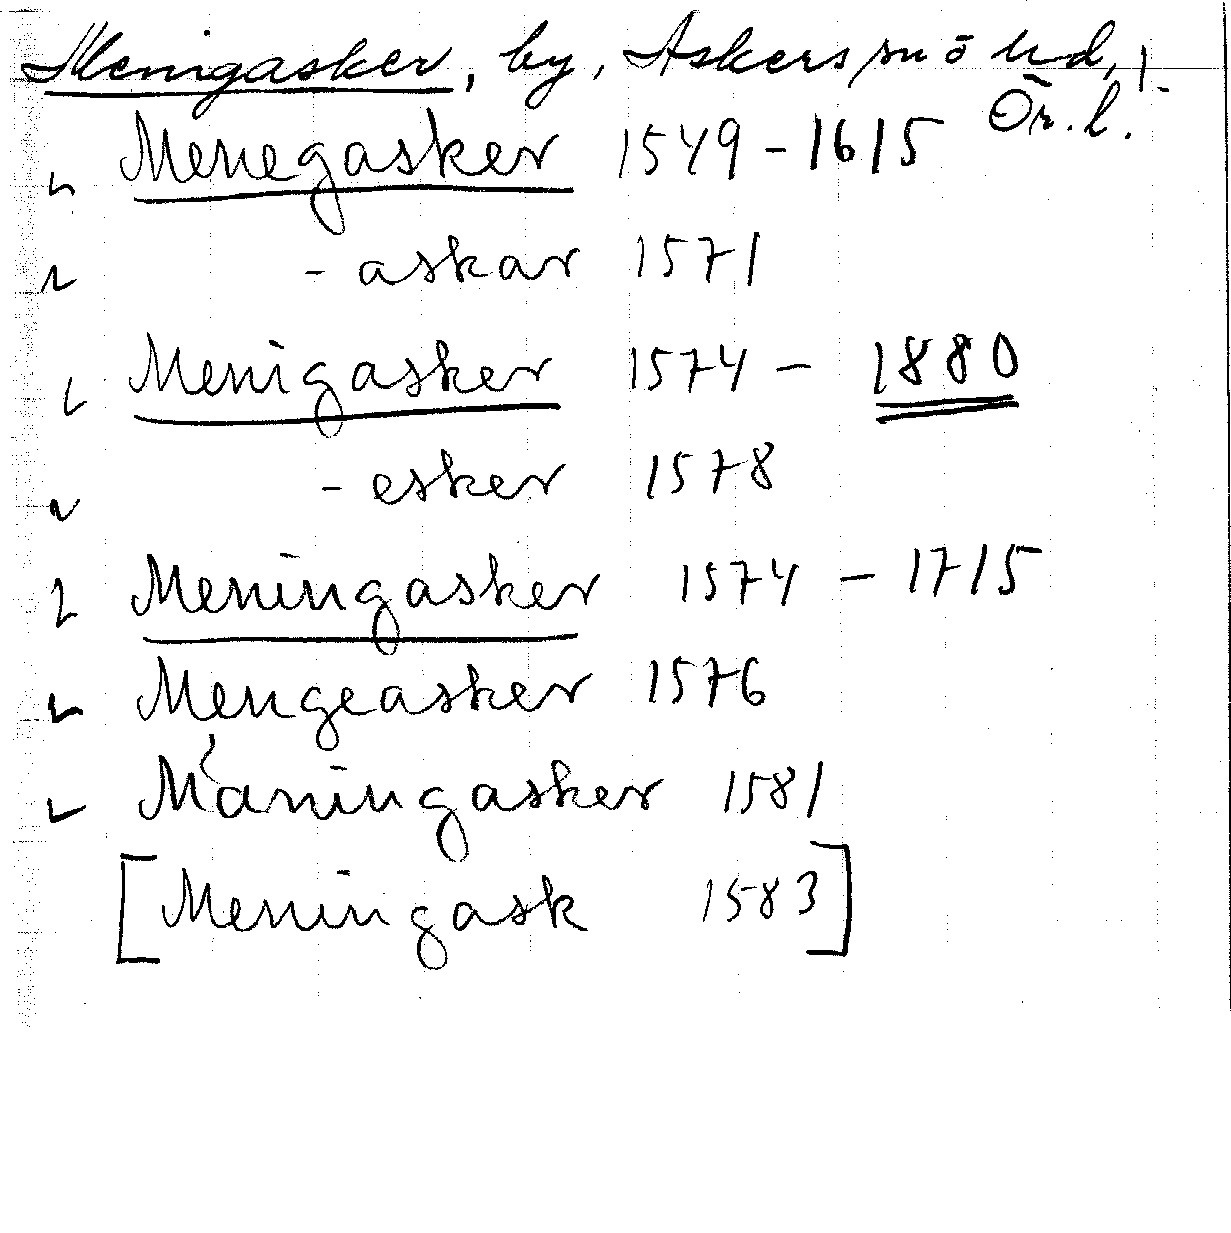 Menigasker, by, Askers sn o hd,
Ör. l.
Menegasker 1549 - 1615
- askar 1571
Menigasker 1574 - 1880
- esker 1578
Meningasker 1574 - 1715
Mengeasker 1576
Maningasker 1581
[Meningask 1583]